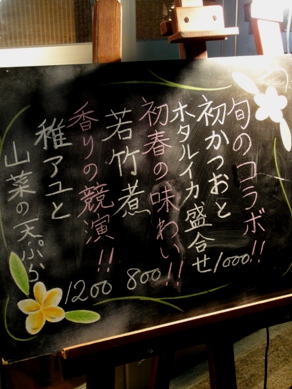 旬のコラボ!!
初かつおと
ホタルイカ盛合せ 1000
初春の味わい!!
若竹煮 800
香りの競演!!
稚アユと
山菜の天ぷら 1200